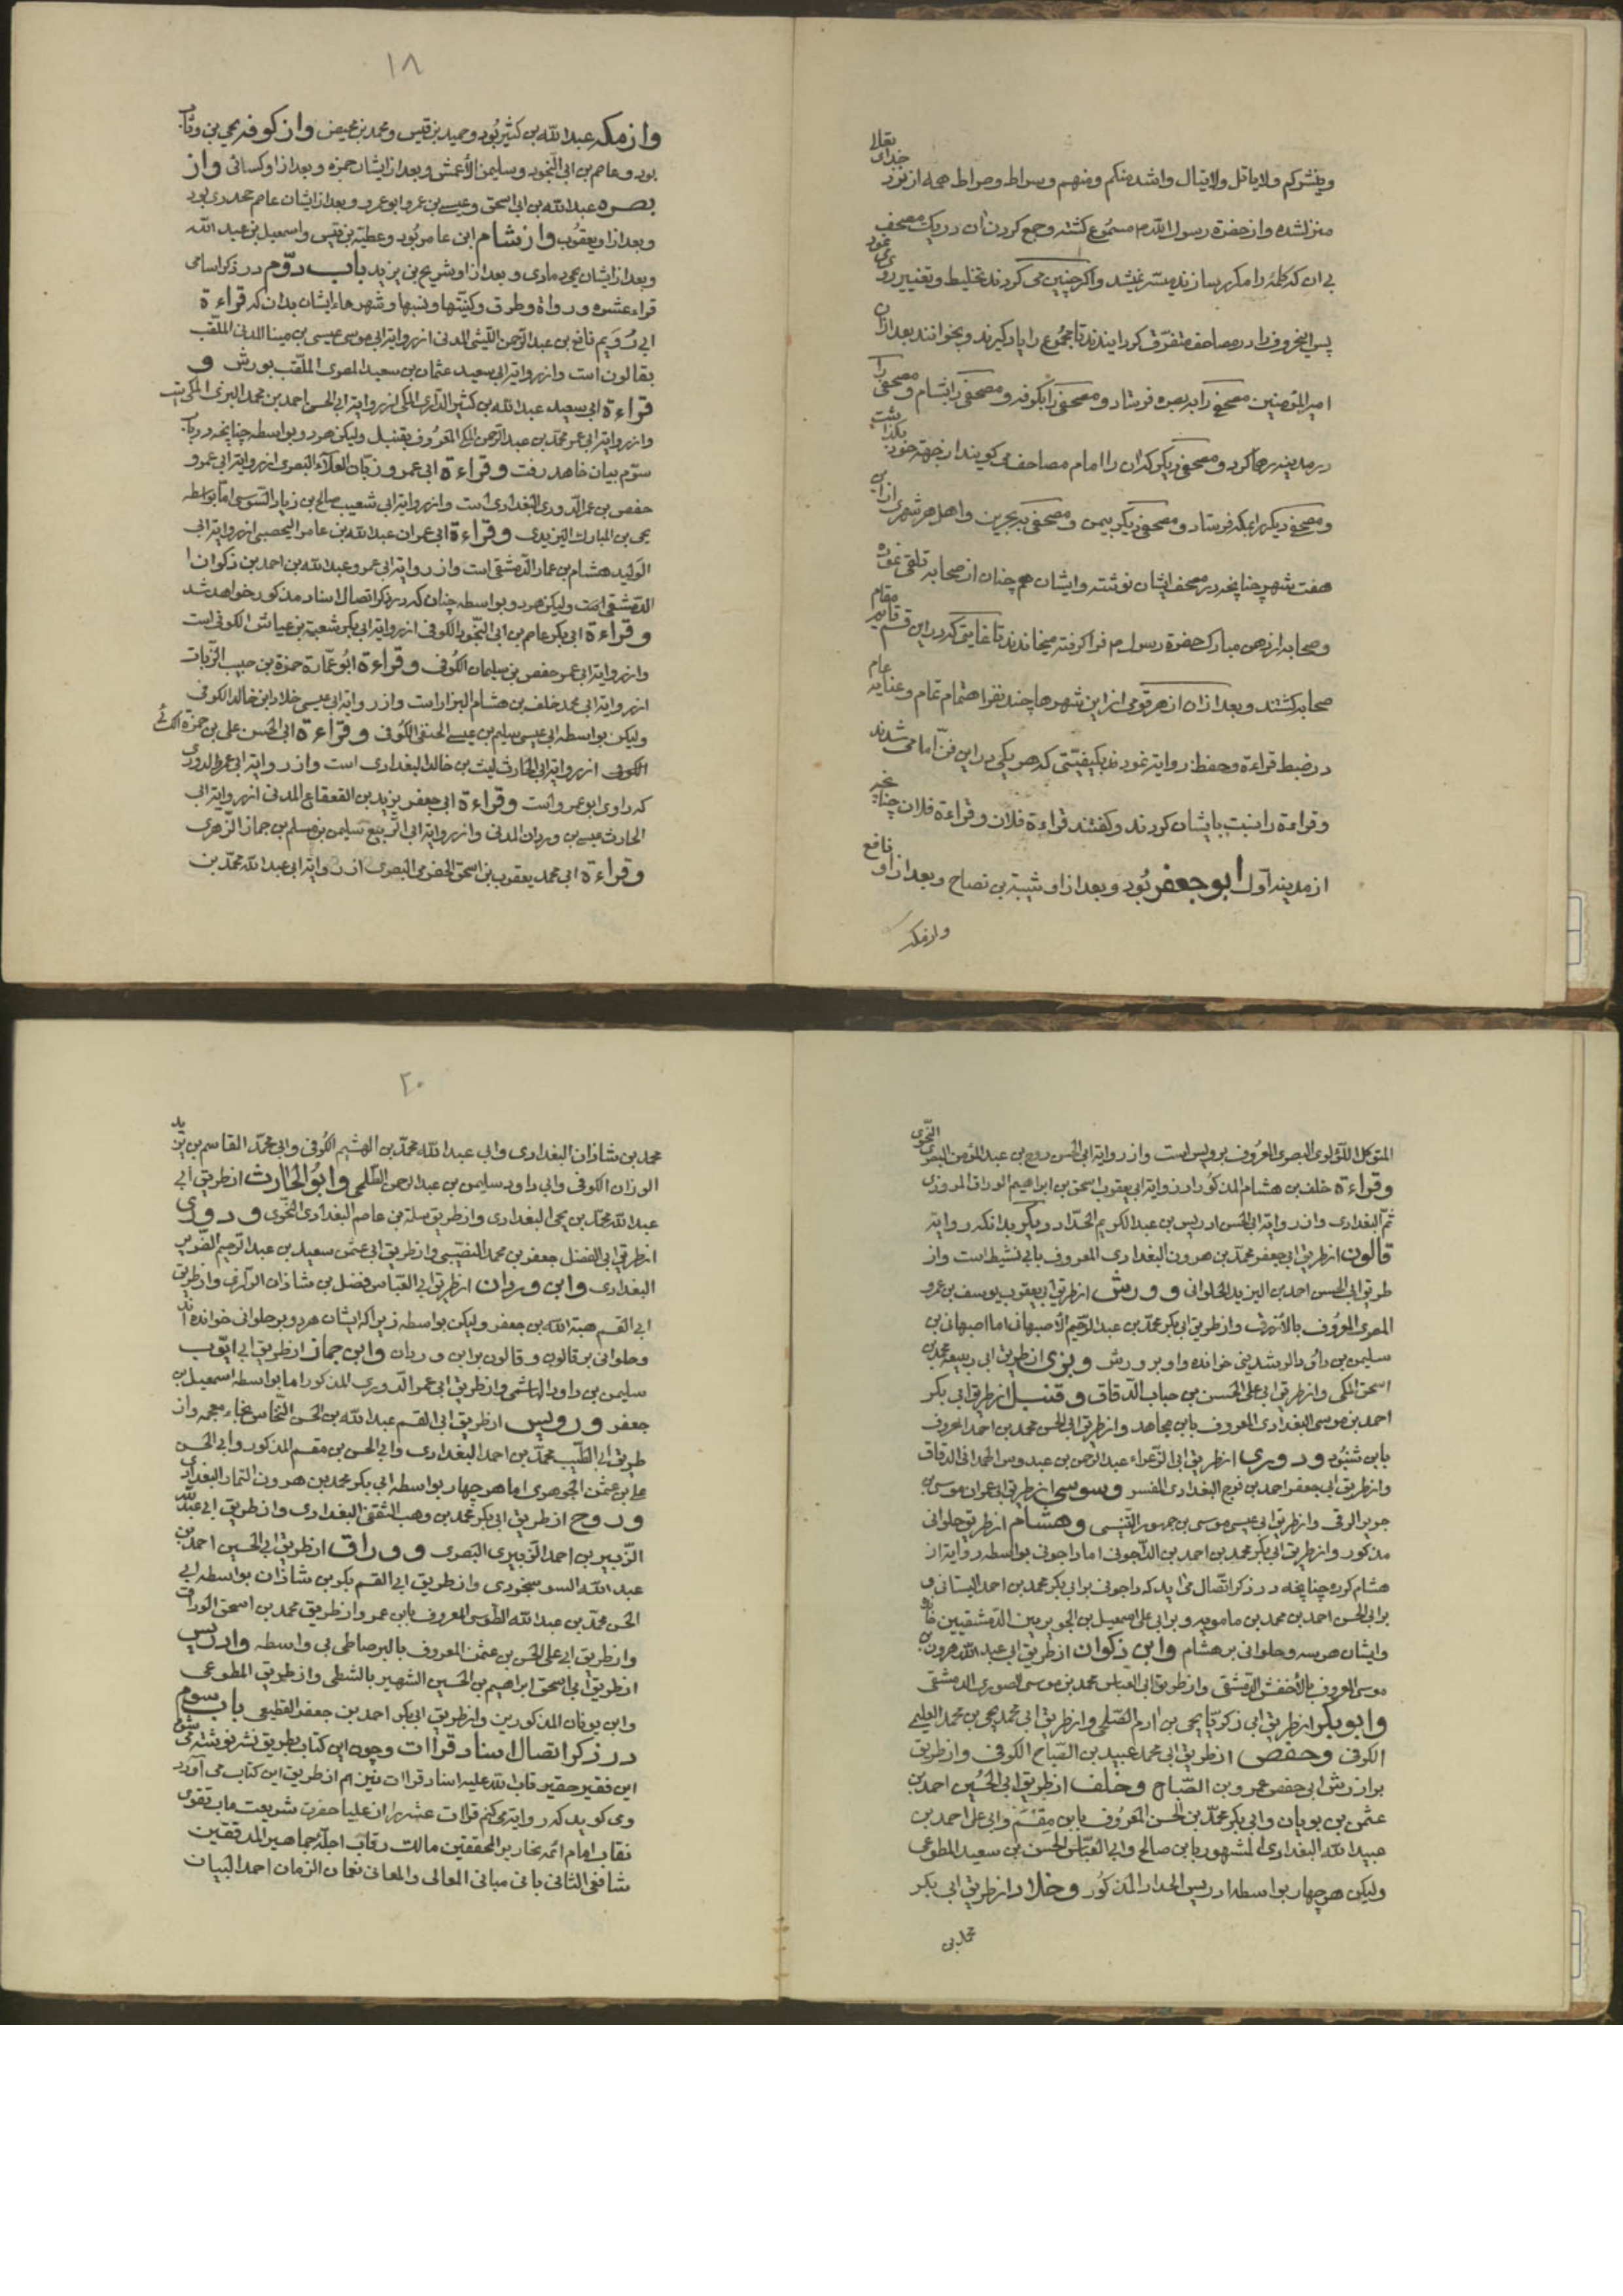 وینشرکم ولا یاتل ولا یتال واشد منکم ومنهم وسراط وصراط همه از نزد خدای تعالی
منزل شده واز حضرة رسول الله م مسموع کشته وجمع کردن آن در یک مصحف
بی ان که کلمۀ را مکرر سازند میسر نمیشد واکر چنین می کردند تخلیط وتغییر روی نمود
پس این حروف را در مصاحف متفرق کردانیدند تا مجموع را یاد کیرند وبخوانند بعد ازان
امیر المؤمنین مصحفی را به بصره فرستاد ومصحفی را بکوفه ومصحفی را بشام ومصحفی را
در مدینه رها کرد ومصحفی دیکر که ان را امام مصاحف می کویند از جهة خود بکذاشت
ومصحفی دیکر را بمکه فرستاد ومصحفی دیکر بیمن ومصحفی به بحرین واهل هر شهری ازاین
هفت شهر چنانچه در مصحف ایشان نوشته وایشان هم چنان از صحابه تلقی نموده
وصحابه از دهن مبارک حضرة رسول م فرا کرفته میخاندند تا غایتی که در این قسم قایم مقام
صحابه کشتند وبعد ازان از هر قومی از این شهرها چند نفر اهتمام تمام وعنایه عام
در ضبط قراءة وحفظ روایة نمودند بکیفیتی که هر یکی در این فن امامی شدند
وقراءة را نسبت بایشان کردند وکفتند قراءة فلان وقراءة فلان چنانچه
از مدینه اول ابو جعفر بود وبعد ازاو شیبة بن نصاح وبعد ازاو نافع
واز مکه
١٨
واز مکه عبد الله بن کثیر بود وحمید بن قیس ومحمد بن محیص واز کوفه یحیی بن وثاب
بود وعاصم بن ابی النجود وسلیمن الأعمش وبعد ازایشان حمزه وبعد ازاو کسائی واز
بصره عبد الله بن ابی اسحق وعیسی بن عمر وابو عمرو وبعد ازایشان عاصم جحدری بود
وبعد ازاو یعقوب واز شام ابن عامر بود وعطیة بن قیس واسمعیل بن عبد الله
وبعد ازایشان یحیی ذماری وبعد ازاو شریح بن یزید باب دوّم در ذکر اسامی
قراء عشره ورواة وطرق وکنیتها ونسبها وشهرهاء ایشان بدان که قراءة
ابی رُوَیم نافع بن عبد الرحمن اللیثی المدنی از روایة ابی موسی عیسی بن مینا المدنی الملقب
بقالون است واز روایة ابی سعید عثمان بن سعید المصری الملقب بورش و
قراءة ابی سعید عبد الله بن کثیر الداری المکی از روایة ابی الحسن احمد بن محمد البزی المکی است
واز روایة ابی عمر محمد بن عبد الرحمن المکی المعروف بقنبل ولیکن هر دو بواسطه چنانچه در باب
سوّم بیان خاهد رفت وقراءة ابی عمرو زبان العلاء البصری از روایة ابی عمرو
حفص بن عمر الدوری البغدادی است واز روایة ابی شعیب صالح بن زیاد السوسی اما بواسطه
یحیی بن المبارک الیزیدی وقراءة ابی عمران عبد الله بن عامر الیحصبی از روایة ابی
الولید هشام بن عمار الدمشقی است واز روایة ابی عمرو عبد الله بن احمد بن ذکوان ا
الدمشقی است ولیکن هر دو بواسطه چنان که در ذکر اتصال اسناد مذکور خواهد شد
وقراءة ابی بکر عاصم بن ابی النجود الکوفی از روایة ابی بکر شعبة بن عیاش الکوفی است
واز روایة ابی عمر حفص بن سلیمان الکوفی وقراءة ابو عمارة حمزة بن حبیب الزیات
از روایة ابی محمد خلف بن هشام البزار است واز روایة ابی عیسی خلاد ابن خالد الکوفی
ولیکن بواسطه ابی عیسی سلیم بن عیسی الحنفی الکوفی وقراءة ابی الحسن علی بن حمزة الکسائی
الکوفی از روایة ابی الحارث لیث بن خالد البغدادی است واز روایة ابی عمر الدوری
که راوی ابو عمرو است وقراءة ابی جعفر یزید بن القعقاع المدنی از روایة ابی
الحارث عیسی بن وردان المدنی واز روایة ابی الربیع سلیمن بن مسلم بن جماز الزهری
وقراءة ابی محمد یعقوب بن اسحق الحضرمی البصری از روایة ابی عبد الله محمد بن
المتوکل اللؤلوی البصری المعروف برویس است واز روایة ابی الحسن روح بن عبد المؤمن البصری النحوی
وقراءة خلف بن هشام المذکور از روایة ابی یعقوب اسحق بن ابراهیم الوراق المروزی
ثم البغدادی واز روایة ابی الحسن ادریس بن عبد الکریم الحداد ودیکر بدانکه روایة
قالون از طریق ابی جعفر محمد بن هرون البغدادی المعروف بابی نشیط است واز
طریق ابی الحسن احمد بن الیزید الحلوانی وورش از طریق ابی یعقوب یوسف بن عمرو
المصری المعروف بالأزرق واز طریق ابی بکر محمد بن عبد الرحیم الأصبهانی اما اصبهانی بن
سلیمن بن داؤد الرشدینی خوانده واو بر ورش وبزی از طریق ابی ربیعه محمد بن
اسحق المکی واز طریق ابی علی الحسن بن حباب الدقاق وقنبل از طریق ابی بکر
احمد بن موسی البغدادی المعروف بابن مجاهد واز طریق ابی الحسن محمد بن احمد المعروف
بابن شنبوذ ودوری از طریق ابی الزعراء عبد الرحمن بن عبدوس الهمدانی الدقاق
واز طریق ابی جعفر احمد بن فرح البغدادی المفسر وسوسی از طریق ابی عمران موسی بن
جریر الرقی واز طریق ابی عیسی موسی بن جمهور التنیسی وهشام از طریق حلوانی
مذکور واز طریق ابی بکر محمد بن احمد بن الداجونی اما داجونی بواسطه روایة از
هشام کرده چنانچه در ذکر اتصال می اید که داجونی بر ابی بکر محمد بن احمد البیسانی و
بر ابی الحسن احمد بن محمد بن مامویه وبر ابی علی اسمعیل بن الحویرس الدمشقیین خانده
وایشان هر سه وحلوانی بر هشام وابن ذکوان از طریق ابی عبد الله هرون بن
موسی المعروف بالأخفش الدمشقی واز طریق ابی العباس محمد بن موسی الصوری الدمشقی
وابو بکر از طریق ابی زکریا یحیی بن ادم الصلحی واز طریق ابی محمد یحیی بن محمد العلیمی
الکوفی وحفص از طریق ابی محمد عبید بن الصباح الکوفی واز طریق
برادرش ابی حفص عمرو بن الصباح وخلف از طریق ابی الحسین احمد بن
عثمن بن بویان وابی بکر محمد بن الحسن المعروف بابن مِقْسَم وابی علی احمد بن
عبید الله البغدادی المشهور بابن صالح وابی العباس الحسن بن سعید المطوعی
ولیکن هر چهار بواسطه ادریس الحداد المذکور وخلاد از طریق ابی بکر
محمد بن
٢٠
محمد بن شاذان البغدادی وابی عبد الله محمد بن الهیثم الکوفی وابی محمد القاسم بن یزید
الوزان الکوفی وابی داود سلیمن بن عبد الرحمن الطلحی وابو الحارث از طریق ابی
عبد الله محمد بن یحیی البغدادی واز طریق سلمة بن عاصم البغدادی النحوی ودوری
از طریق ابی الفضل جعفر بن محمد النصیبی واز طریق ابی عثمن سعید بن عبد الرحیم الضریر
البغدادی وابن وردان از طریق ابی العباس فضل بن شاذان الرازی واز طریق
ابی القسم هبة الله بن جعفر ولیکن بواسطه زیرا که ایشان هر دو بر حلوانی خوانده اند
وحلوانی بر قالون وقالون بر ابن وردان وابن جماز از طریق ابی ایوب
سلیمن بن داود الهاشمی واز طریق ابی عمر الدوری المذکور اما بواسطه اسمعیل بن
جعفر ورویس از طریق ابی القسم عبد الله بن الحسن النخاس بخاء معجمه واز
طریق ابی الطیب محمد بن احمد البغدادی وابی الحسن بن مقسم المذکور وابی الحسن
علی بن عثمن الجوهری اما هر چهار بواسطه ابی بکر محمد بن هرون التمار البغدادی
وروح از طریق ابی بکر محمد بن وهب الثقفی البغدادی واز طریق ابی عبد الله
الزبیر بن احمد الزبیری البصری ووراق از طریق ابی الحسین احمد بن
عبد الله السوسنجردی واز طریق ابی القسم بکر بن شاذان بواسطه ابی
الحسن محمد بن عبد الله الطوسی المعروف بابن عمر واز طریق محمد بن اسحق الوراق
واز طریق ابی علی الحسن بن عثمن المعروف بالبرصاطی بی واسطه وادریس
از طریق ابی اسحق ابراهیم بن الحسین الشهیر بالشطی واز طریق المطوعی
وابن بویان المذکورین واز طریق ابی بکر احمد بن جعفر القطیعی باب سوم
در ذکر اتصال اسناد قراات وچون این کتاب بطریق نشر نوشته می شود
این فقیر حقیر تاب الله علیه اسناد قراات نیز هم از طریق این کتاب می آورد
ومی کوید که روایة می کنم قراات عشر را از علیا حضرت شریعت ماب تقوی
نقاب امام ائمه نحاریر المحققین مالک رقاب اجلّه جماهیر المدققین
شافعی الثانی بانی مبانی المعالی والمعانی نعمان الزمان احمد البیان